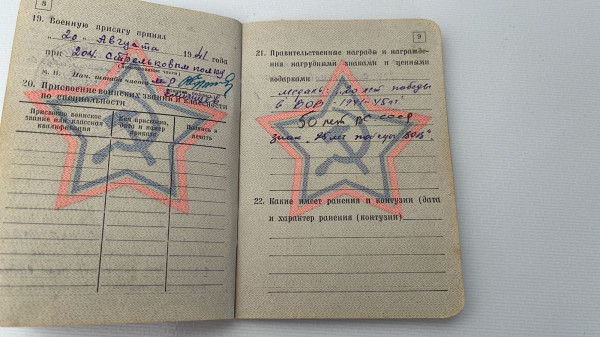 8
19. Военную присягу принял
„ 20 „ Августа 1941 года
при 204. Стрелковым полку
(наименование части)
м. п. Нач. штаба части м-р
20. Присвоение воинских званий и
по специальности
Присвоено воинское
звание или классная
квалификация
Кем присвоено,
дата и номер
приказа
Подпись и
печать
9
21. Правительственные награды и награжде-
ния нагрудными знаками и ценными
подарками
медаль: „20 лет победы
в ВОВ 1941-45гг.
50 лет ВС СССР
знак „25 лет победы ВОВ".
22. Какие имеет ранения и контузии (дата
и характер ранения (контузии)